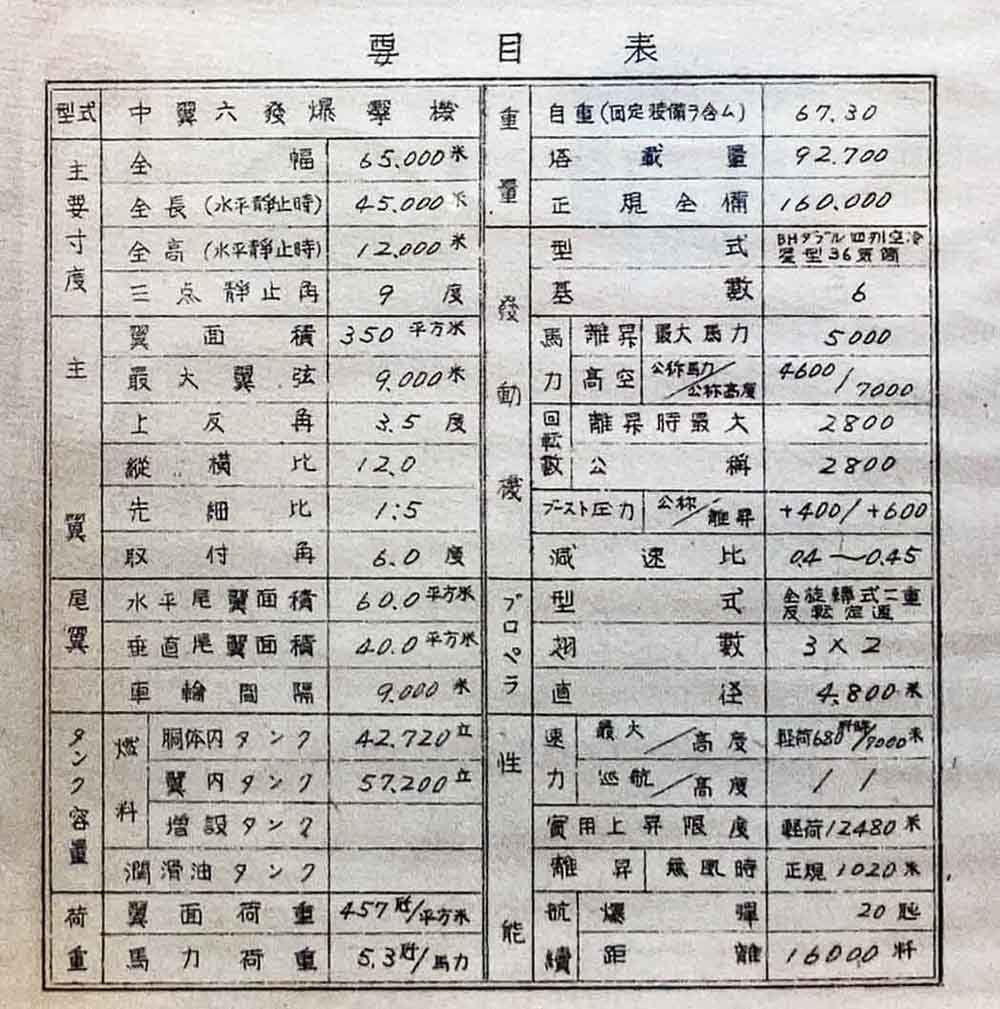 要目表
型式 中翼六發爆擊機
主要寸度
全幅 65.000米
全長(水平靜止時) 45.000米
全高(水平靜止時) 12.000米
三点靜止角 9度
主翼
翼面積 350平方米
最大翼弦 9.000米
上反角 3.5度
縦横比 12.0
先細比 1:5
取付角 6.0度
尾翼
水平尾翼面積 60.0平方米
垂直尾翼面積 40.0平方米
車輪間隔 9.000米
タンク容量
燃料
胴体内タンク 42.720立
翼内タンク 57.200立
増設タンク
潤滑油タンク
荷重
翼面荷重 457瓩/平方米
馬力荷重 5.3瓩/馬力
重量
自重(固定装備ヲ含ム) 67.30
搭載量 92.700
正規全備 160.000
發動機
型式 BHダブル四列空冷
星型36気筒
基数 6
馬力
離昇 最大馬力 5000
高空 公称馬力/公称高度 4600/7000
回転数
離昇時最大 2800
公稱 2800
ブースト圧力 公称/離昇 +400/+600
減速比 0.4〜0.45
プロペラ
型式 全旋轉式二重
反転定速
翅数 3×2
直径 4.800米
性能
速力
最大/高度 軽荷680粁時/7000米
巡航/高度 / /
實用上昇限度 軽荷12480米
離昇 無風時 正規1020米
航續
爆彈 20瓲
距離 16000粁